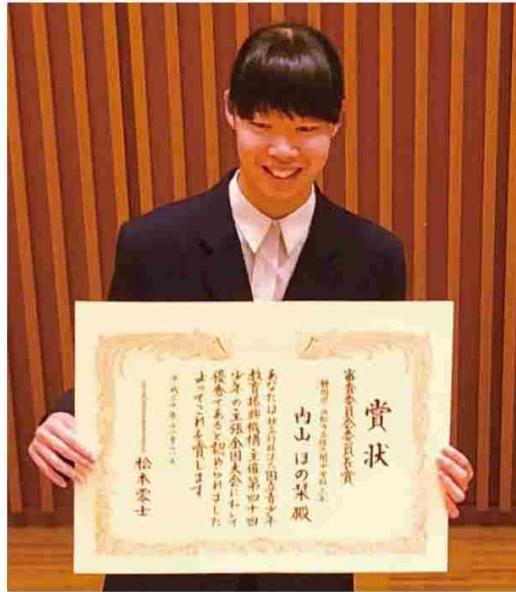 賞状
審査委員会委員長賞
内山 ほの栞 殿
あなたは独立行政法人国立青少年
教育振興機構主催第四十回
少年の主張全国大会において
優秀であると認められました
よってこれを賞します
平成三十年十一月
松本零士